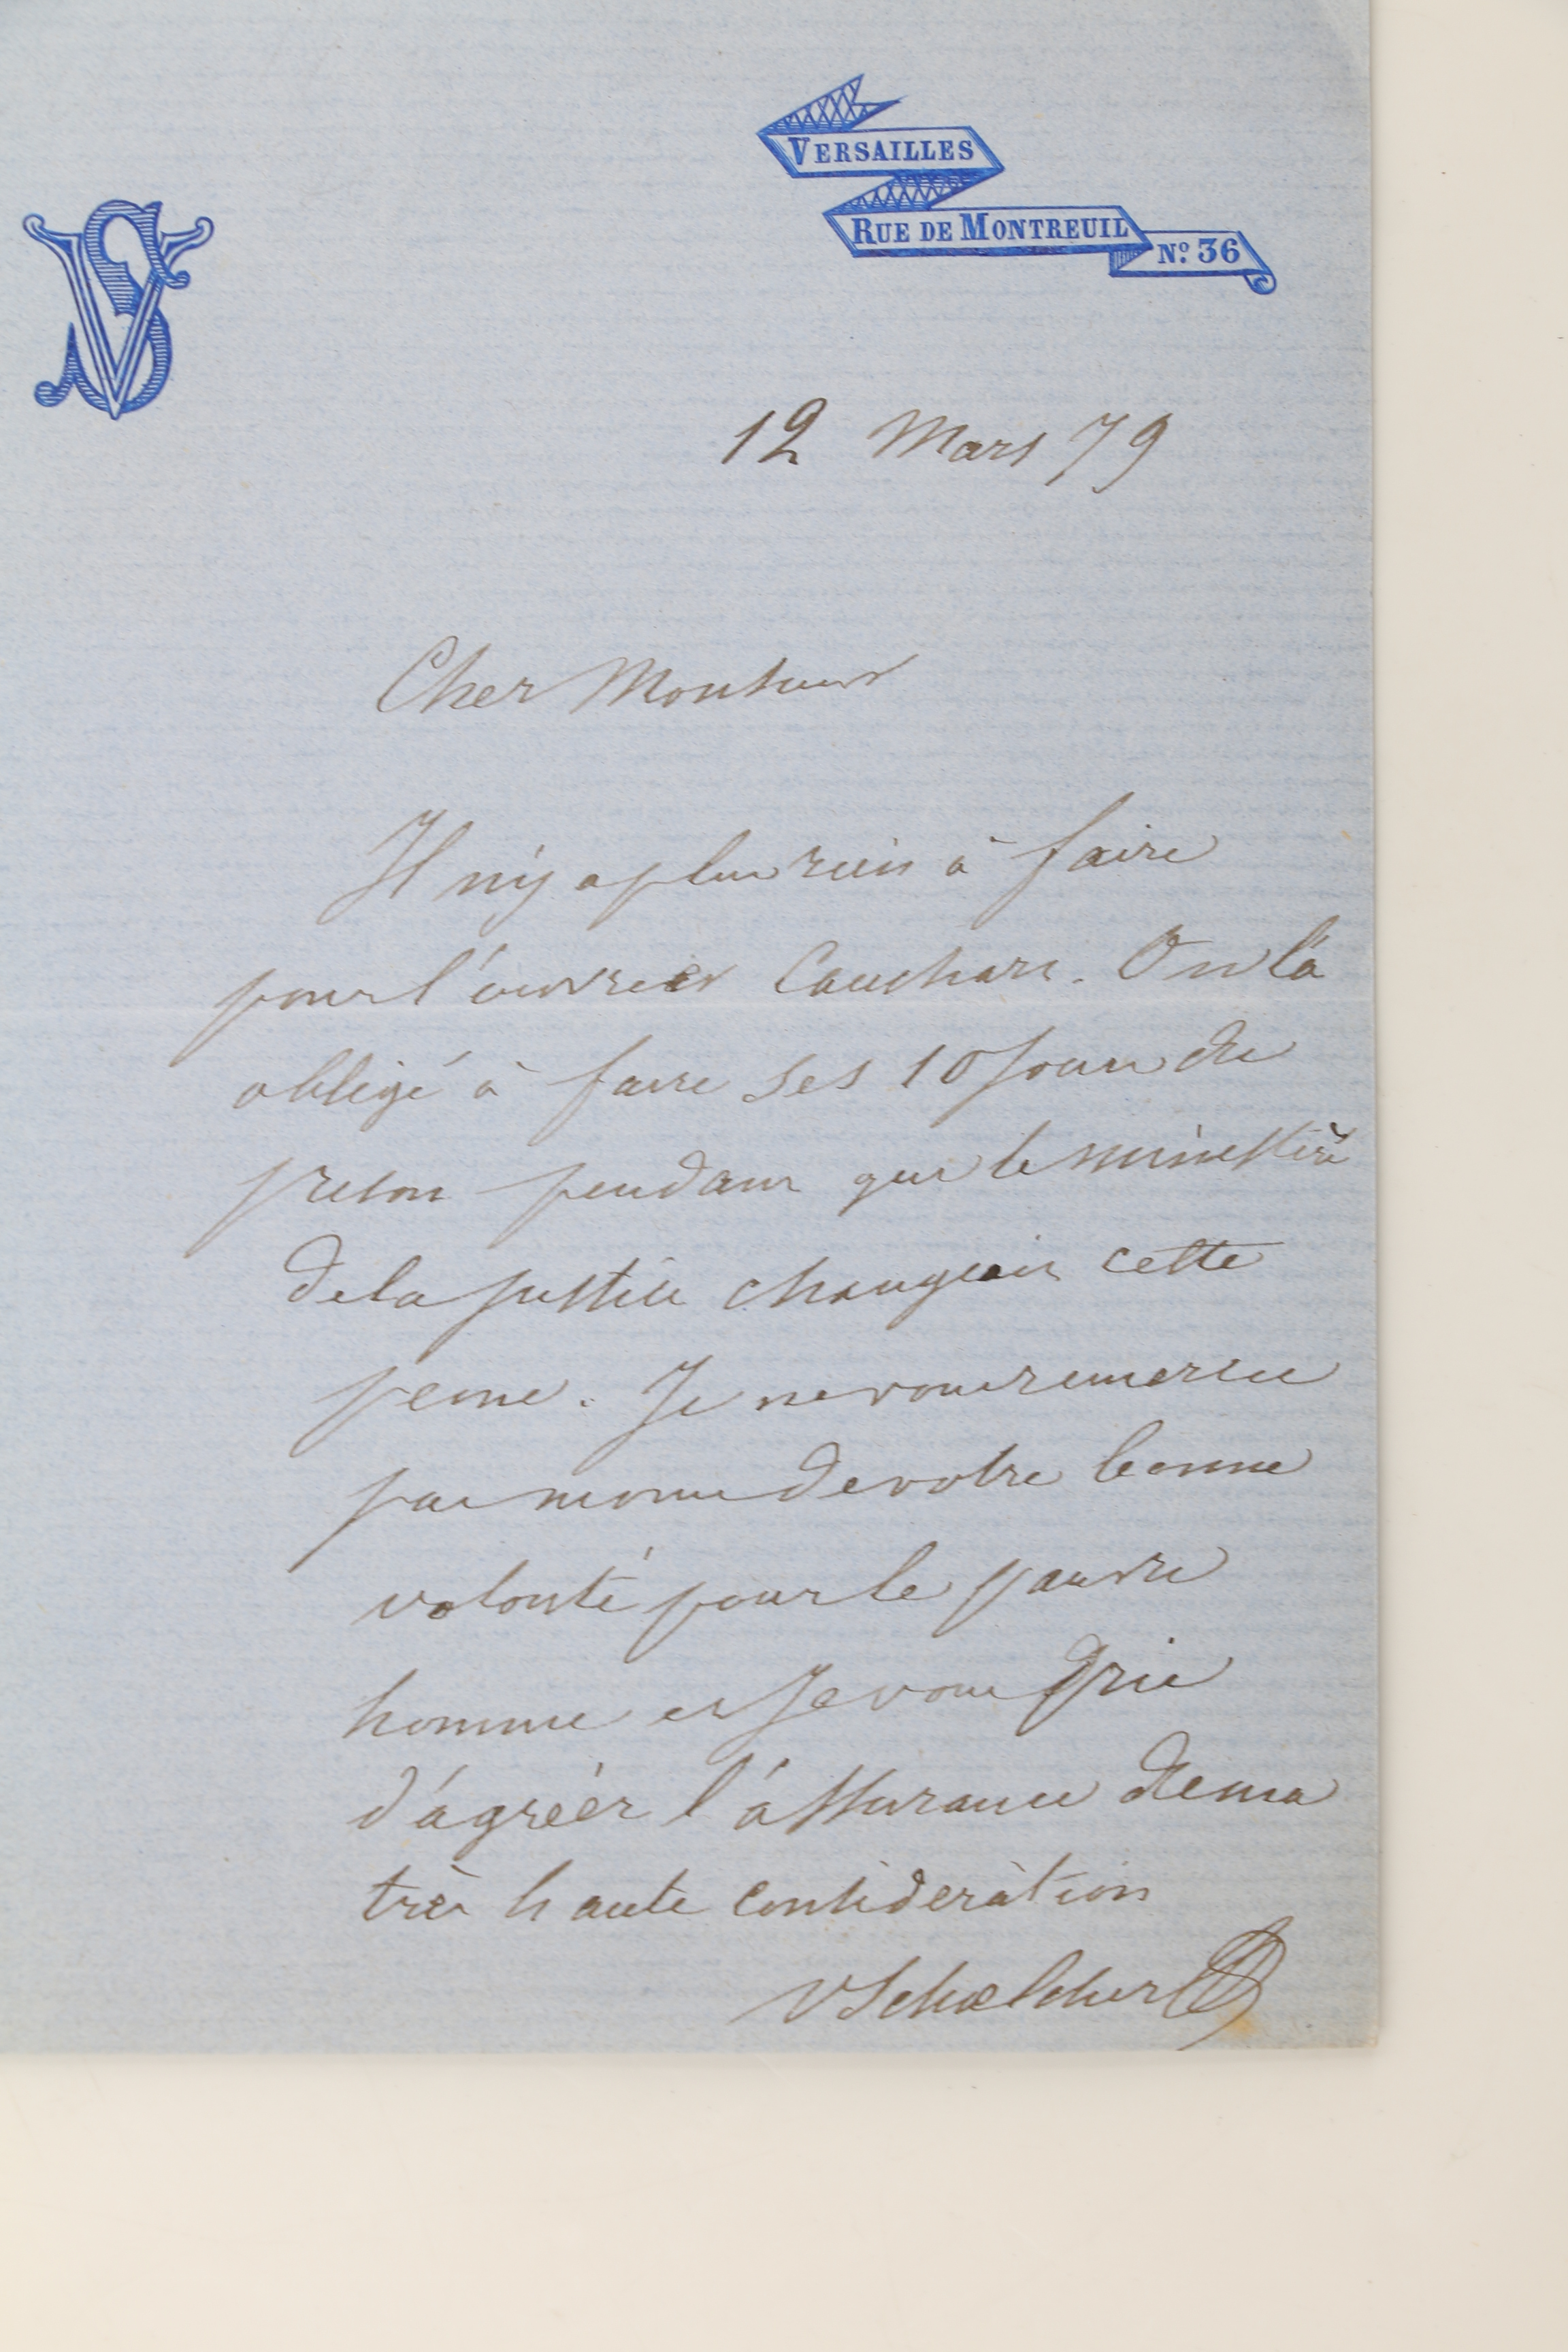 VS
VERSAILLES
RUE DE MONTREUIL
Nº 36
12 Mars 79
Cher Monsieur
Il n'y a plus rien à faire
pour l'ouvrier . On l'a
obligé à faire ses 10 jours de
prison pendant que le ministère
de la justice changeait cette
peine. Je ne vous remercie
pas moins de votre bonne
volonté pour le pauvre
homme et je vous prie
d'agréer l'assurance de ma
très haute considération
V Schœlcher